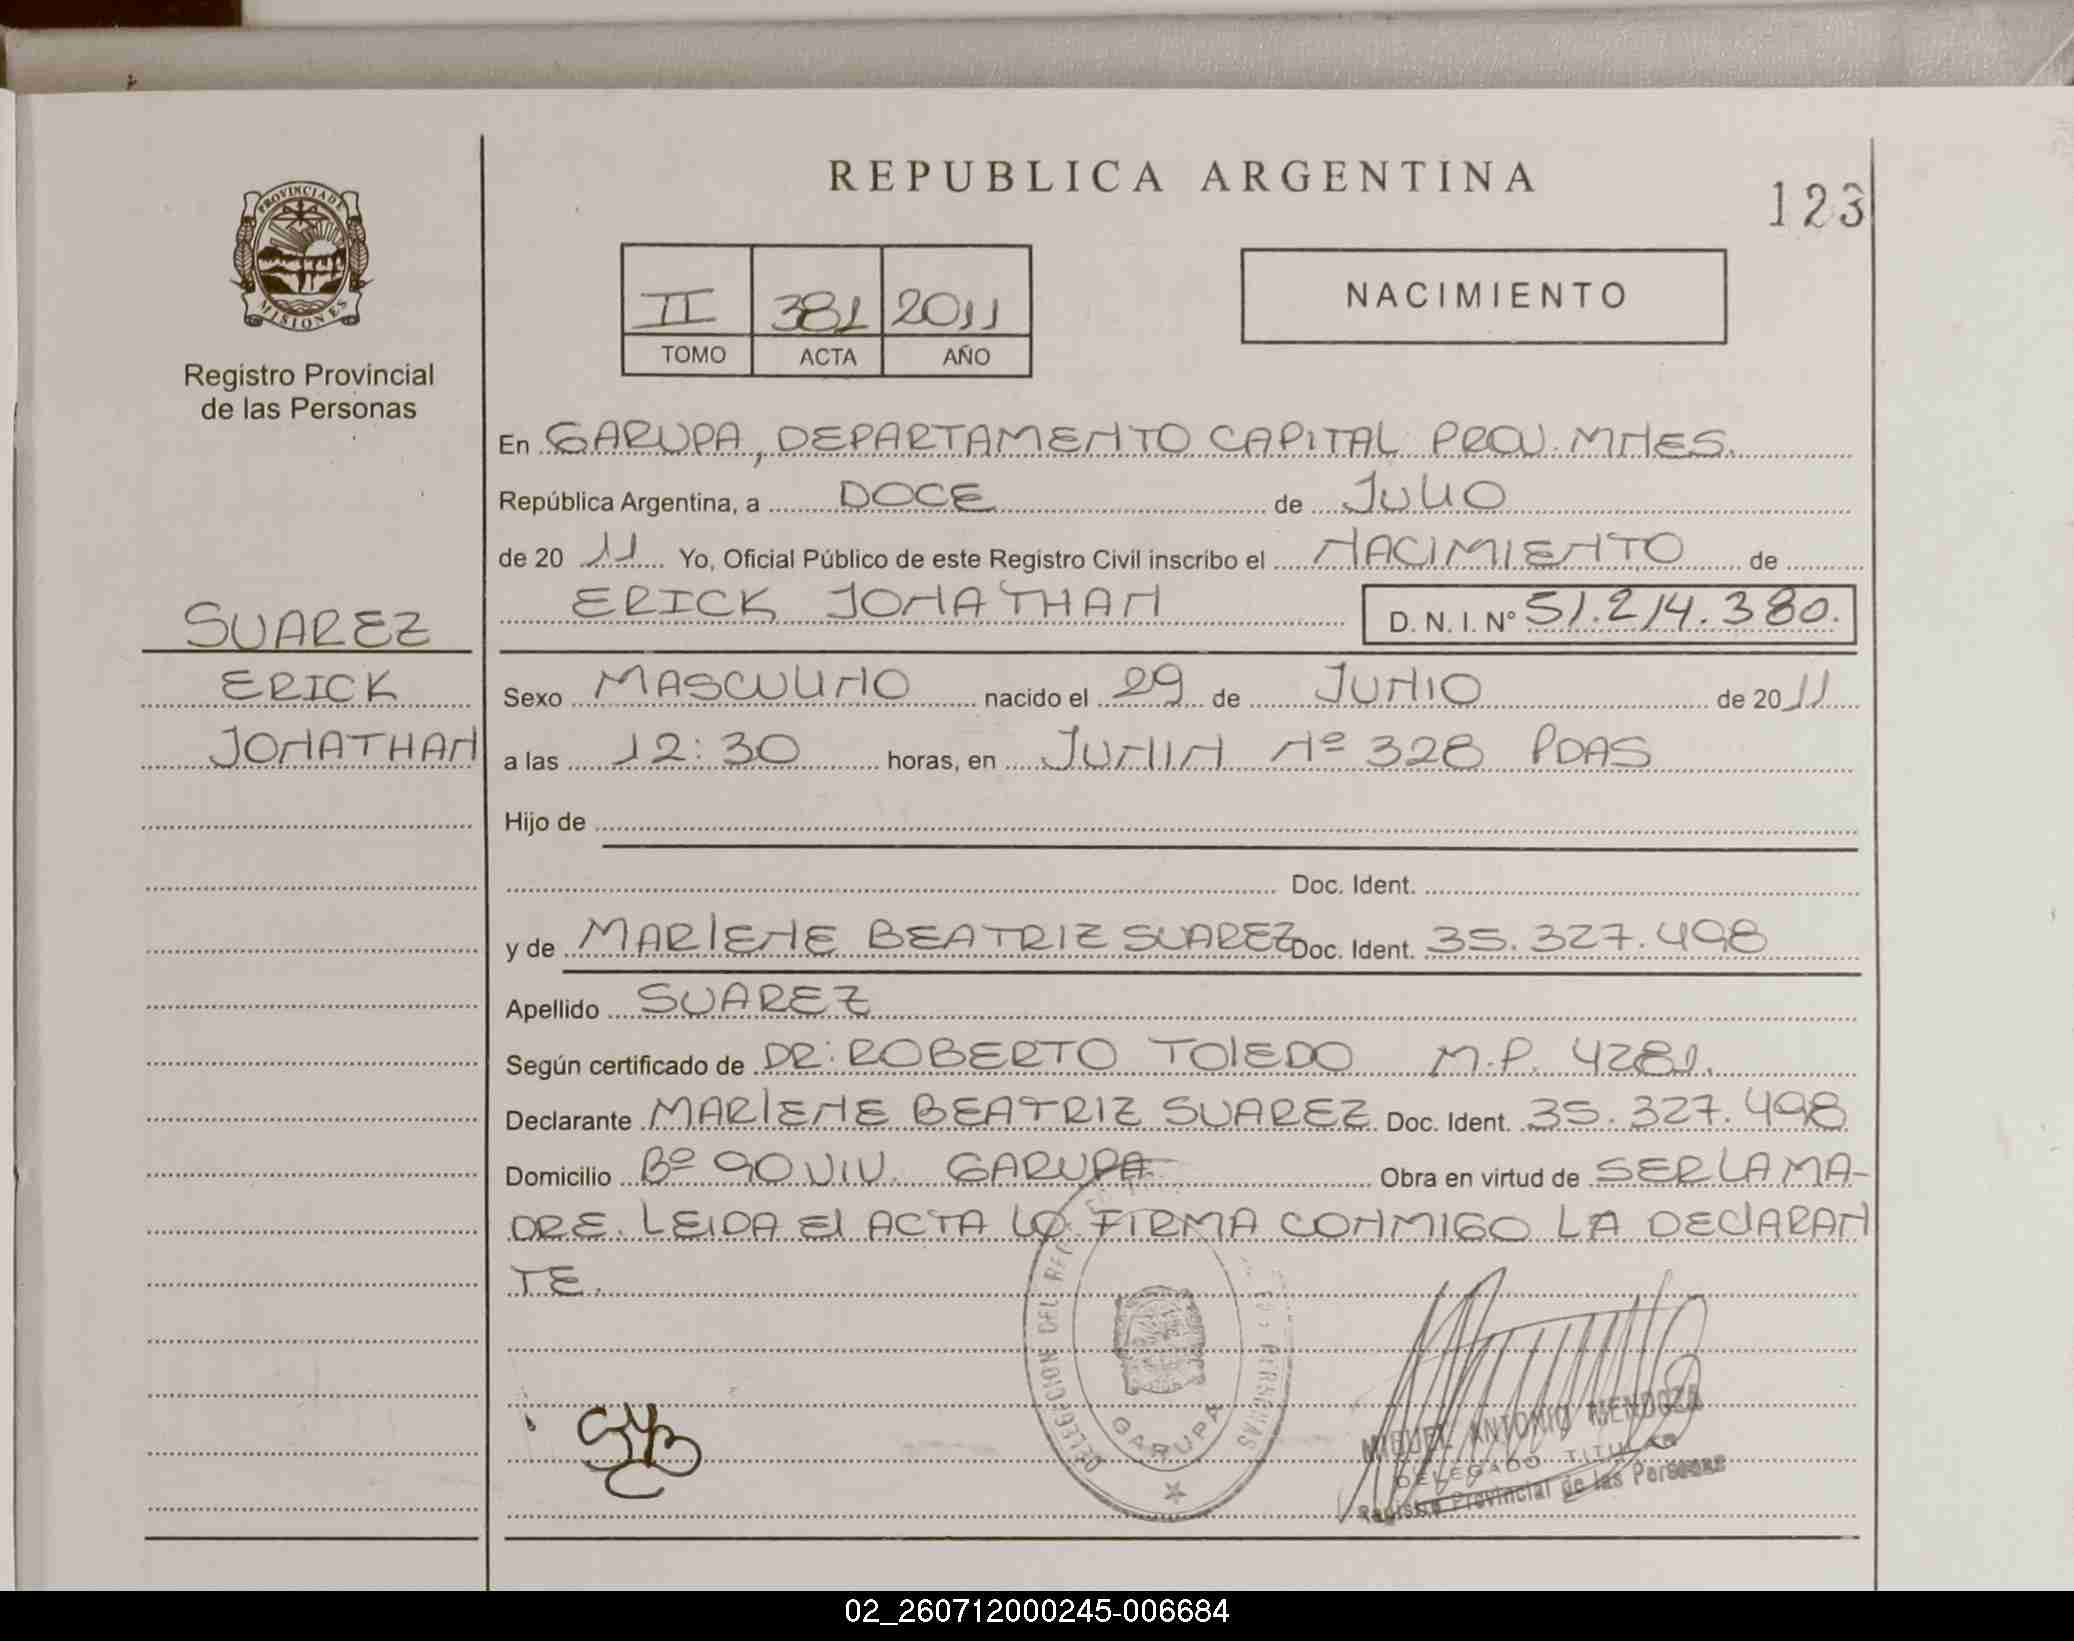 REPUBLICA ARGENTINA
123
PROVINCIA DE
MISIONES
Registro Provincial
de las Personas
II 381 2011
TOMO ACTA AÑO
NACIMIENTO
En GARUPA, DEPARTAMENTO CAPITAL PROV. MNES.
República Argentina, a DOCE de JULIO
de 20 11 Yo, Oficial Público de este Registro Civil inscribo el NACIMIENTO de
ERICK JONATHAN D. N. I. N° 51.214.380.
SUAREZ
ERICK
JONATHAN
Sexo MASCULINO nacido el 29 de JUNIO de 20 11
a las 12:30 horas, en JUNIN Nº 328 PDAS
Hijo de
Doc. Ident.
y de MARLENE BEATRIZ SUAREZ Doc. Ident. 35.327.498
Apellido SUAREZ
Según certificado de DR: ROBERTO TOLEDO M.P. 4281.
Declarante MARLENE BEATRIZ SUAREZ Doc. Ident. 35.327.498
Domicilio Bº 90 VIV. GARUPA Obra en virtud de SER LA MA-
DRE. LEIDA El ACTA LO FIRMA CONMIGO LA DECLARAN
TE.
DELEGACION DEL REG PERSONAS
GARUPA
MIGUEL ANTONIO MENDOZA
DELEGADO TITULAR
Registro Provincial de las Personas
02_260712000245-006684